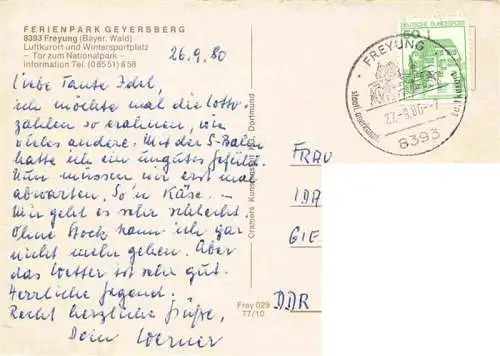 FERIENPARK GEYERSBERG
8393 Freyung (Bayer. Wald)
Luftkurort und Wintersportplatz
– Tor zum Nationalpark –
Information Tel. (08551) 858
26.9.80
Liebe Tante Idel,
ich möchte mal die Lotto-
zahlen so erahnen, wie
vieles andere. Mit der
hatte ich ein ungutes Gefühl.
Nun müssen wir erst mal
abwarten. So'n Käse. –
Mir geht es sehr schlecht.
Ohne Stock kann ich gar
nicht mehr gehen. Aber
das Wetter ist sehr gut.
Herrliche Gegend.
Recht herzliche Grüße,
Dein Werner
Dortmund
Frey 029
77/10
DEUTSCHE BUNDESPOST
FREYUNG
27.-9.80.-7
8393
FRAU
IDA
GIE
DDR